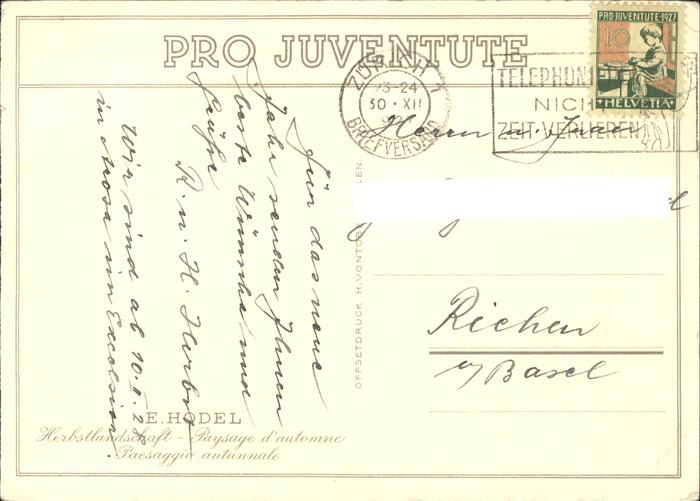 PRO JUVENTUTE
PRO JUVENTUTE·1927
10
HELVETIA
ZÜRICH 7
23-24
30·XII
BRIEFVERSAND
TELEPHON
NICHT
ZEIT VERLIEREN
Herrn u. Frau
Riehen
b/Basel
Für das neue
Jahr senden Ihnen
beste Wünsche und
Grüsse
R. u. H.
Wir sind ab 10.I.28
in Arosa im Excelsior.
OFFSETDRUCK H. VONTOBEL
E. HODEL
Herbstlandschaft - Paysage d'automne
Paesaggio autunnale